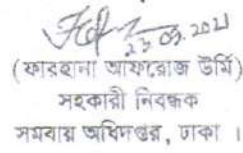 23.09.2021
(ফারহানা আফরোজ উর্মি)
সহকারী নিবন্ধক
সমবায় অধিদপ্তর, ঢাকা ।